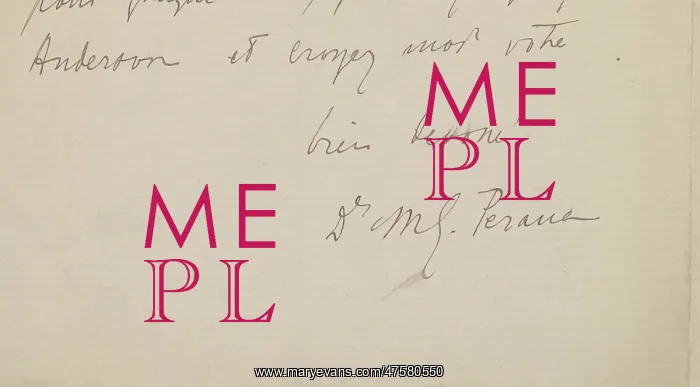 pour
Anderson et croyez moi votre
bien dévoué
Dr MG. Peraire
ME
PL
ME
PL
www.maryevans.com/47580550